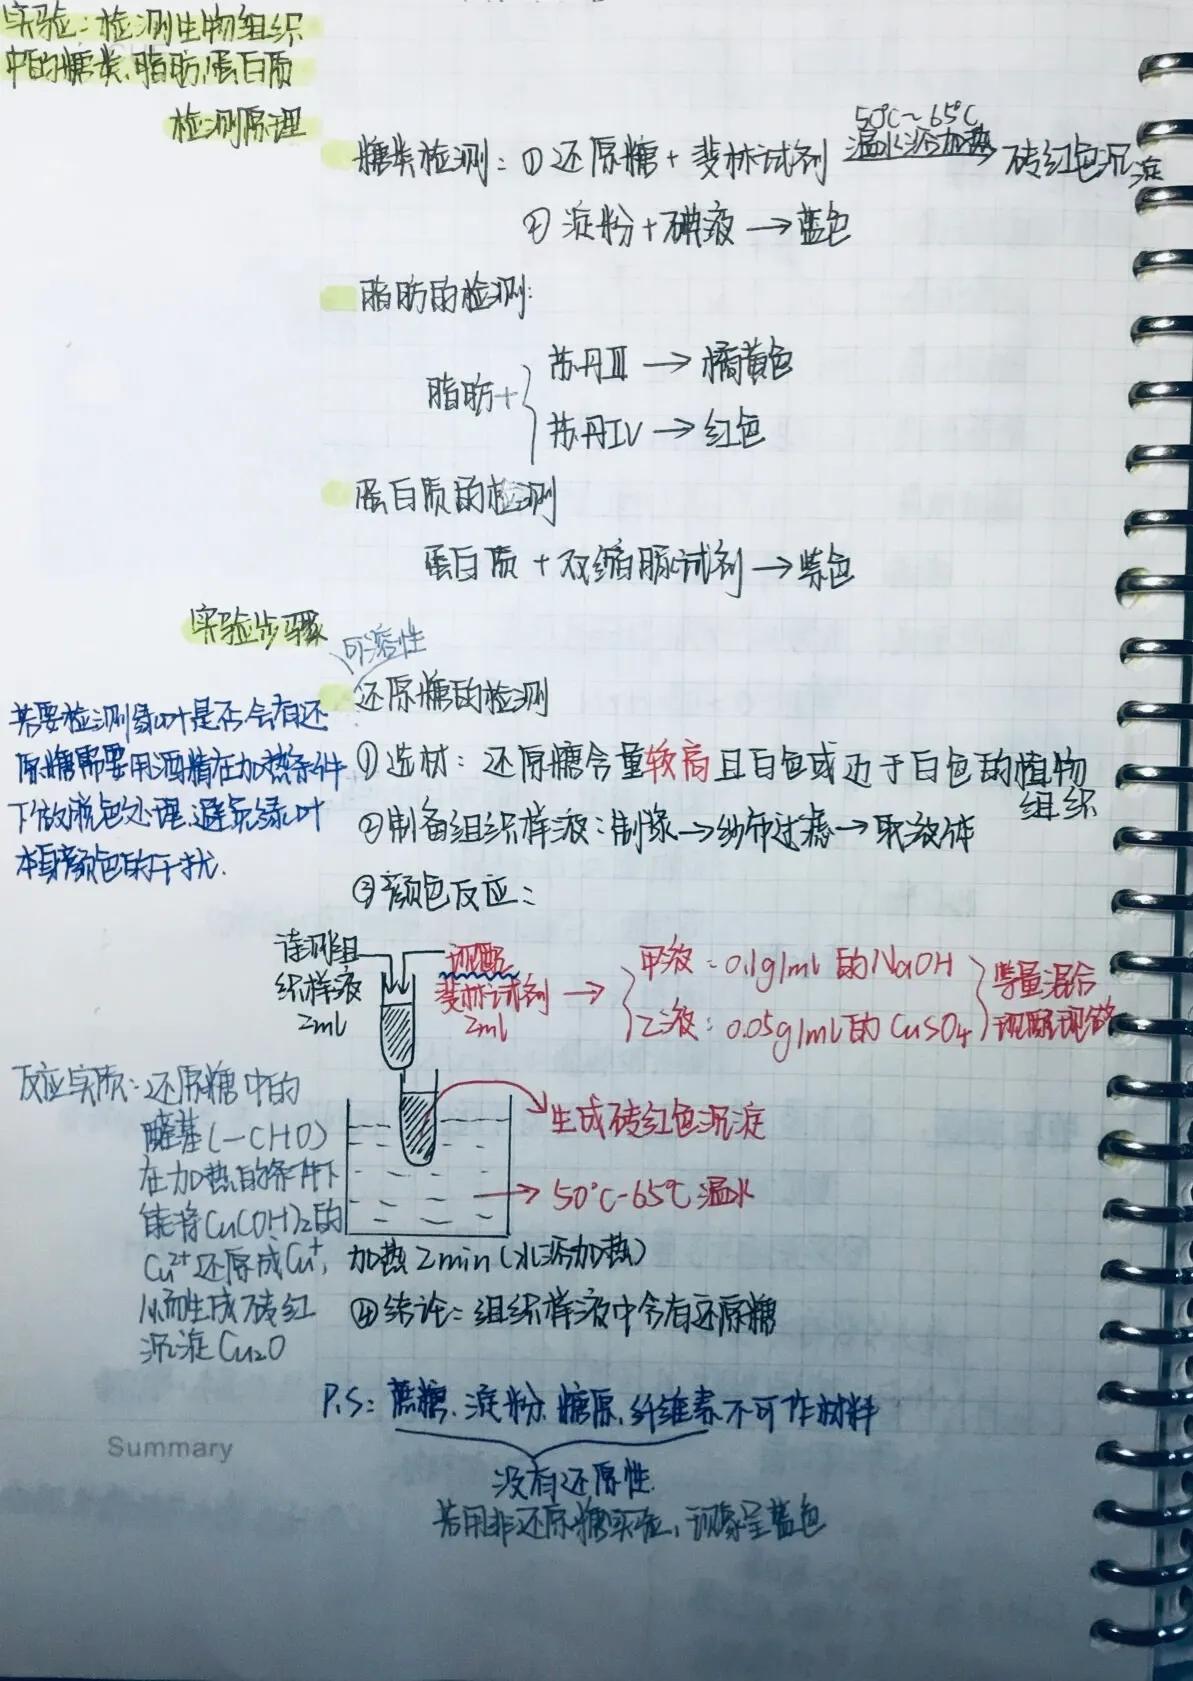 实验：检测生物组织
中的糖类、脂肪、蛋白质
检测原理
糖类检测：①还原糖+斐林试剂 50℃~65℃ 温水浴加热 砖红色沉淀
②淀粉+碘液→蓝色
脂肪的检测：
脂肪+
苏丹Ⅲ→橘黄色
苏丹IV→红色
蛋白质的检测
蛋白质+双缩脲试剂→紫色
实验步骤
可溶性
还原糖的检测
若要检测绿叶是否含有还
原糖需要用酒精在加热条件
下做脱色处理,避免绿叶
本身颜色的干扰.
①选材：还原糖含量较高且白色或近于白色的植物
组织
②制备组织样液：制浆→纱布过滤→取液体
③颜色反应：
待测组
织样液
2ml
现配
斐林试剂
2ml
→
甲液：0.1g/ml的NaOH
乙液：0.05g/ml的CuSO4
等量混合
现配现做
生成砖红色沉淀
50℃-65℃温水
加热2min(水浴加热)
反应实质：还原糖中的
醛基(—CHO)
在加热的条件下
能将Cu(OH)2的
Cu2+还原成Cu+,
从而生成砖红
沉淀Cu2O
④结论：组织样液中含有还原糖
P.S：蔗糖、淀粉、糖原、纤维素不可作材料
没有还原性.
若用非还原糖实验,现象呈蓝色
Summary